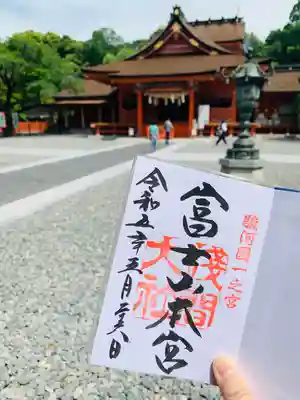 駿河國一之宮
富士山本宮
浅間
大社
令和五年五月二六日